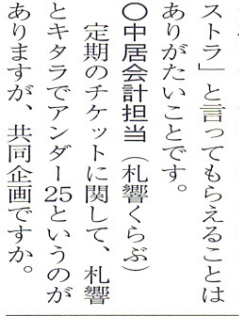 ストラ」と言ってもらえることは
ありがたいことです。
〇中居会計担当（札響くらぶ）
定期のチケットに関して、札響
とキタラでアンダー25というのが
ありますが、共同企画ですか。